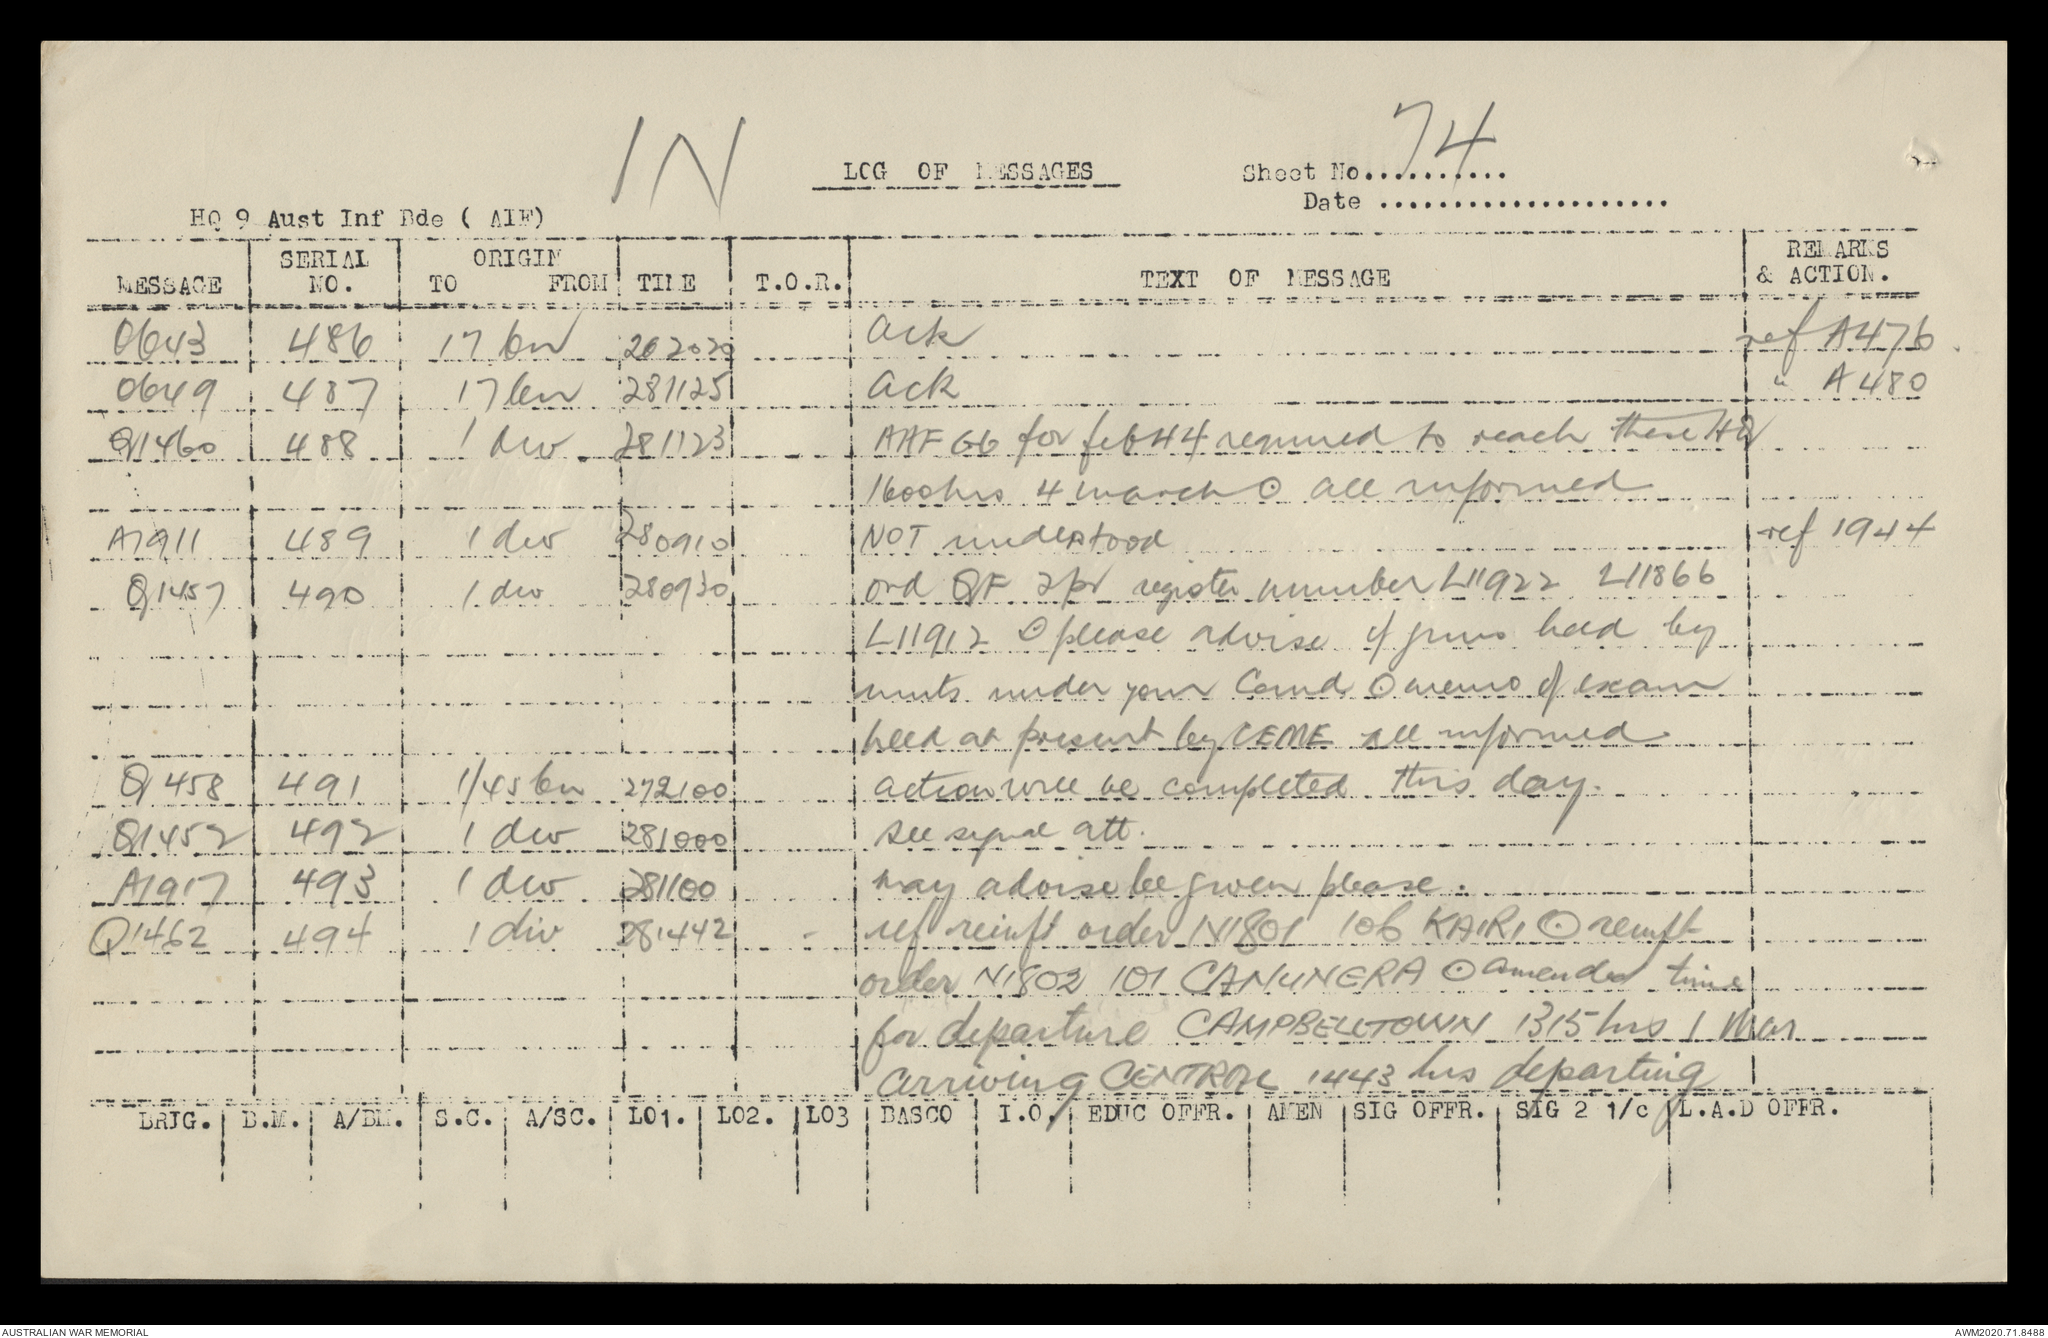 IN
74
LOG OF MESSAGES Sheet No...........
Date ....................
HQ 9 Aust Inf Bde ( AIF)
MESSAGE SERIAL NO. ORIGIN TO FROM TIME T.O.R. TEXT OF MESSAGE REMARKS & ACTION.
O643 486 17 bn 262020 ack ref A476
O649 487 17 bn 281125 ack " A480
Q1460 488 1 div 281123 AAF G6 for feb 44 required to reach these HQ
1600hrs 4 march ⊙ all informed
A1911 489 1 div 280910 NOT understood ref 1944
Q1457 490 1 div 280930 ord QF 2pr register number L11922 L11866
L11912 ⊙ please advise if guns held by
units under your Comd ⊙ memo of exam
held at present by CEME all informed
Q1458 491 1/45 bn 272100 action will be completed this day.
Q1452 492 1 div 281000 see signal att.
A1917 493 1 div 281100 may advise be given please.
Q1462 494 1 div 281442 ref reinft order N1801 106 KAIRI ⊙ reinft
order N1802 101 CANUNERA ⊙ amended time
for departure CAMPBELLTOWN 1315 hrs 1 Mar
arriving CENTRAL 1443 hrs departing
BRIG. B.M. A/BM. S.C. A/SC. LO1. LO2. LO3 BASCO I.O. EDUC OFFR. AMEN SIG OFFR. SIG 2 1/c L.A.D OFFR.
AUSTRALIAN WAR MEMORIAL AWM2020.71.8488